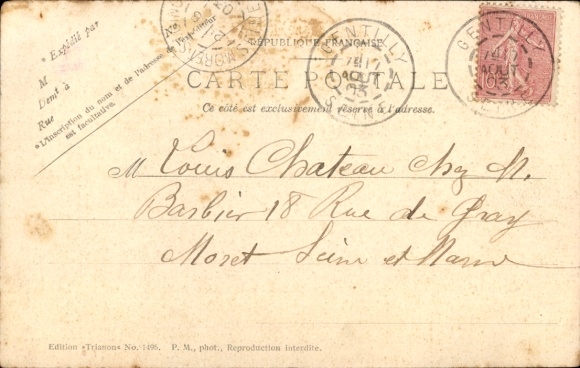 * Expédié par
M
Demt à
Rue
* L'inscription du nom et de l'adresse de l'expéditeur
est facultative.
RÉPUBLIQUE FRANÇAISE
CARTE POSTALE
Ce côté est exclusivement réservé à l'adresse.
GENTILLY
AOUT
03
SEINE
GENTILLY
AOUT
03
MORET
M Louis Chateau chez M.
Barbier 18 Rue de Gray
Moret Seine et Marne
Edition «Trianon» No. 1495. P. M., phot., Reproduction interdite.